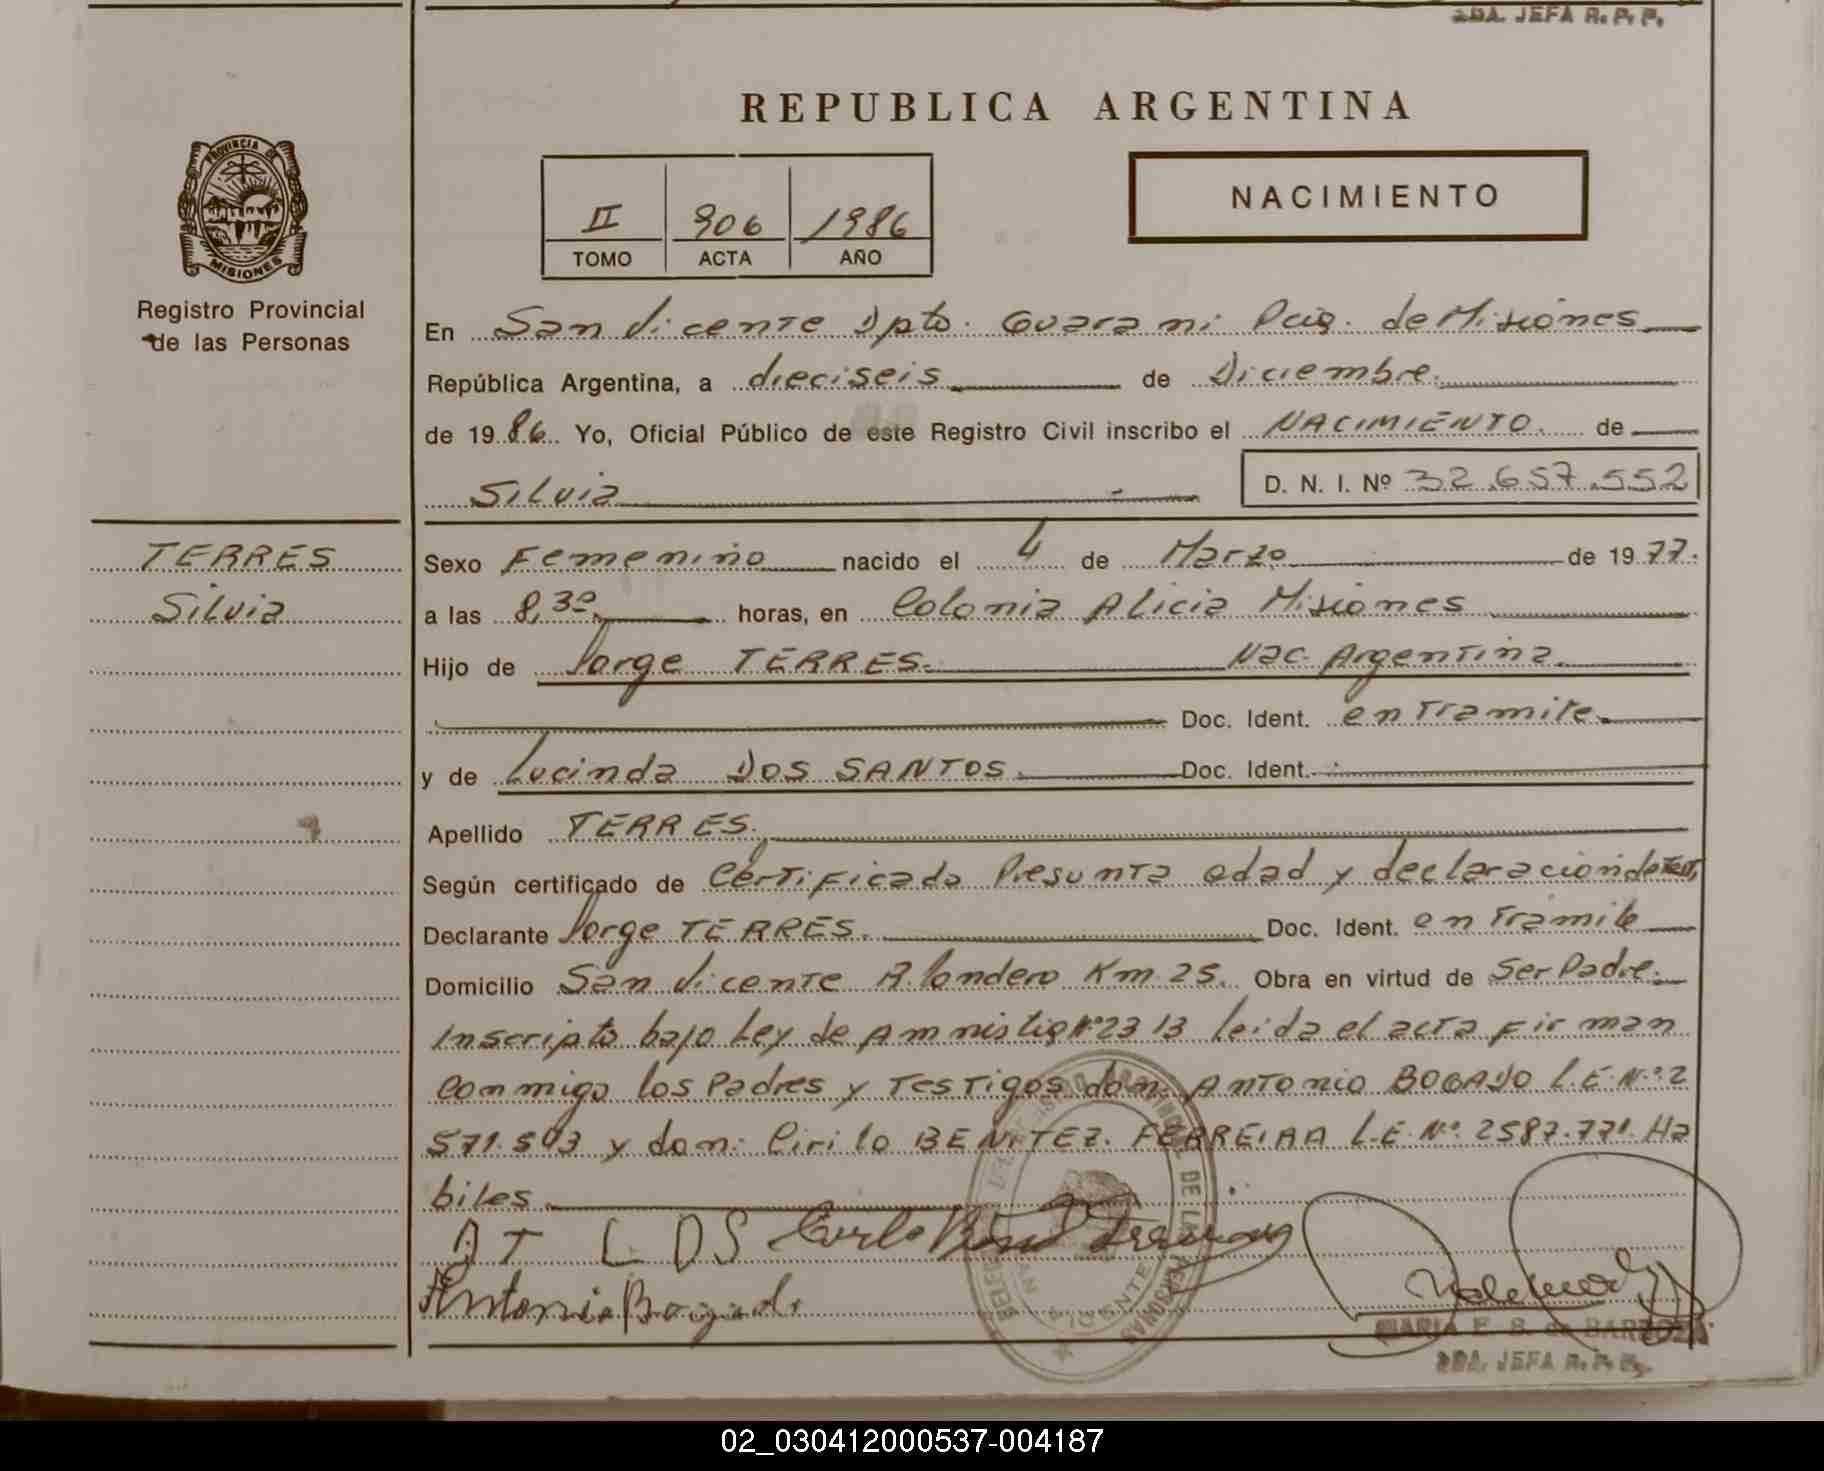 2DA. JEFA R. P. P.
REPUBLICA ARGENTINA
PROVINCIA DE
MISIONES
Registro Provincial
de las Personas
II 906 1986
TOMO ACTA AÑO
NACIMIENTO
En San Vicente Dpto. Guarani Pcia. de Misiones
República Argentina, a dieciseis de Diciembre
de 1986 Yo, Oficial Público de este Registro Civil inscribo el NACIMIENTO. de
Silvia D. N. I. Nº 32.657.552
TERRES
Silvia
Sexo Femenino nacido el 4 de Marzo de 1977.
a las 8,30 horas, en Colonia Alicia Misiones
Hijo de Jorge TERRES. Nac. Argentina
Doc. Ident. en Tramite
y de Lucinda DOS SANTOS. Doc. Ident.
Apellido TERRES.
Según certificado de Certificado Presunta edad y declaracion de Test.
Declarante Jorge TERRES. Doc. Ident. en Tramite
Domicilio San Vicente A. Londero Km. 25. Obra en virtud de Ser Padre.
Inscripto bajo Ley de Amnistia Nº 2313 leida el acta firman
Conmigo los Padres y Testigos don. ANTONIO BOGADO L.E. Nº: 2
571.593 y don: Cirilo BENITEZ. FERREIRA L.E. Nº. 2587.771. Ha
biles
L D S
Antonio Bogado
MARIA E. S. de BARBOZA
2DA. JEFA R. P. P.
02_030412000537-004187